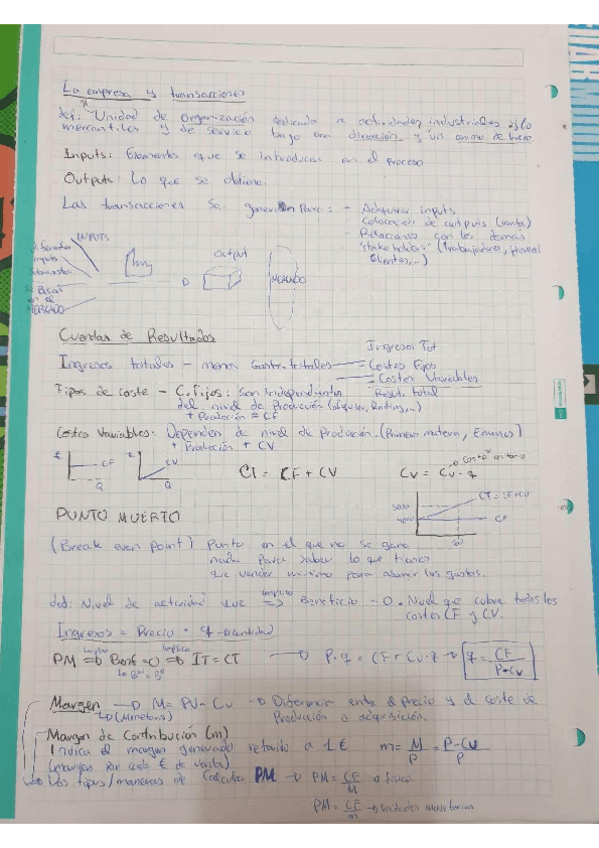 La empresa y transacciones
def: "Unidad de organización dedicada a actividades industriales y/o
mercantiles y de servicio bajo una dirección y un animo de lucro
Inputs: Elementos que se introducen en el proceso
Outputs: Lo que se obtiene.
Las transacciones se generan para: - Adquirir inputs
Colocación de outputs (venta)
- Relaciones con los demás
"stakeholders" (trabajadores,
clientes,...)
INPUTS
inputs
output
MERCADO
se buscan
en el
MERCADO
Cuentas de Resultados
Ingresos Tot
Ingresos totales - menos Gastos totales = Costes Fijos
= Costes Variables
Result. total
Tipos de coste - C. Fijos: Son independientes
del nivel de producción (alquiler,
+ Producción = CF
Costes Variables: Dependen de nivel de producción. (Primeras materias, Envases)
+ Producción + CV
€ CF Q
€ CV Q
CT = CF + CV
CV = Cu · q
CT = CF + CV
CF
PUNTO MUERTO
(Break even point) Punto en el que no se gana
nada para saber lo que tienes
que vender minimo para abonar los gastos.
def: Nivel de actividad que implica => Beneficio = 0. Nivel que cubre todos los
costes CF y CV.
Ingresos = Precio · q → cantidad
PM => Benf = 0 => IT = CT → P·q = CF + Cu·q → q = CF / P-Cu
Margen → M = PV - Cv → Diferencia entre el precio y el coste de
(Monetario) producción o adquisición.
Margen de Contribución (m)
Indica el margen generado referido a 1€ m = M/P = P-CV / P
(margen por cada € de venta)
Dos tipos/maneras de calcular PM → PM = CF/M → físico.
PM = CF/m → unidades monetarias